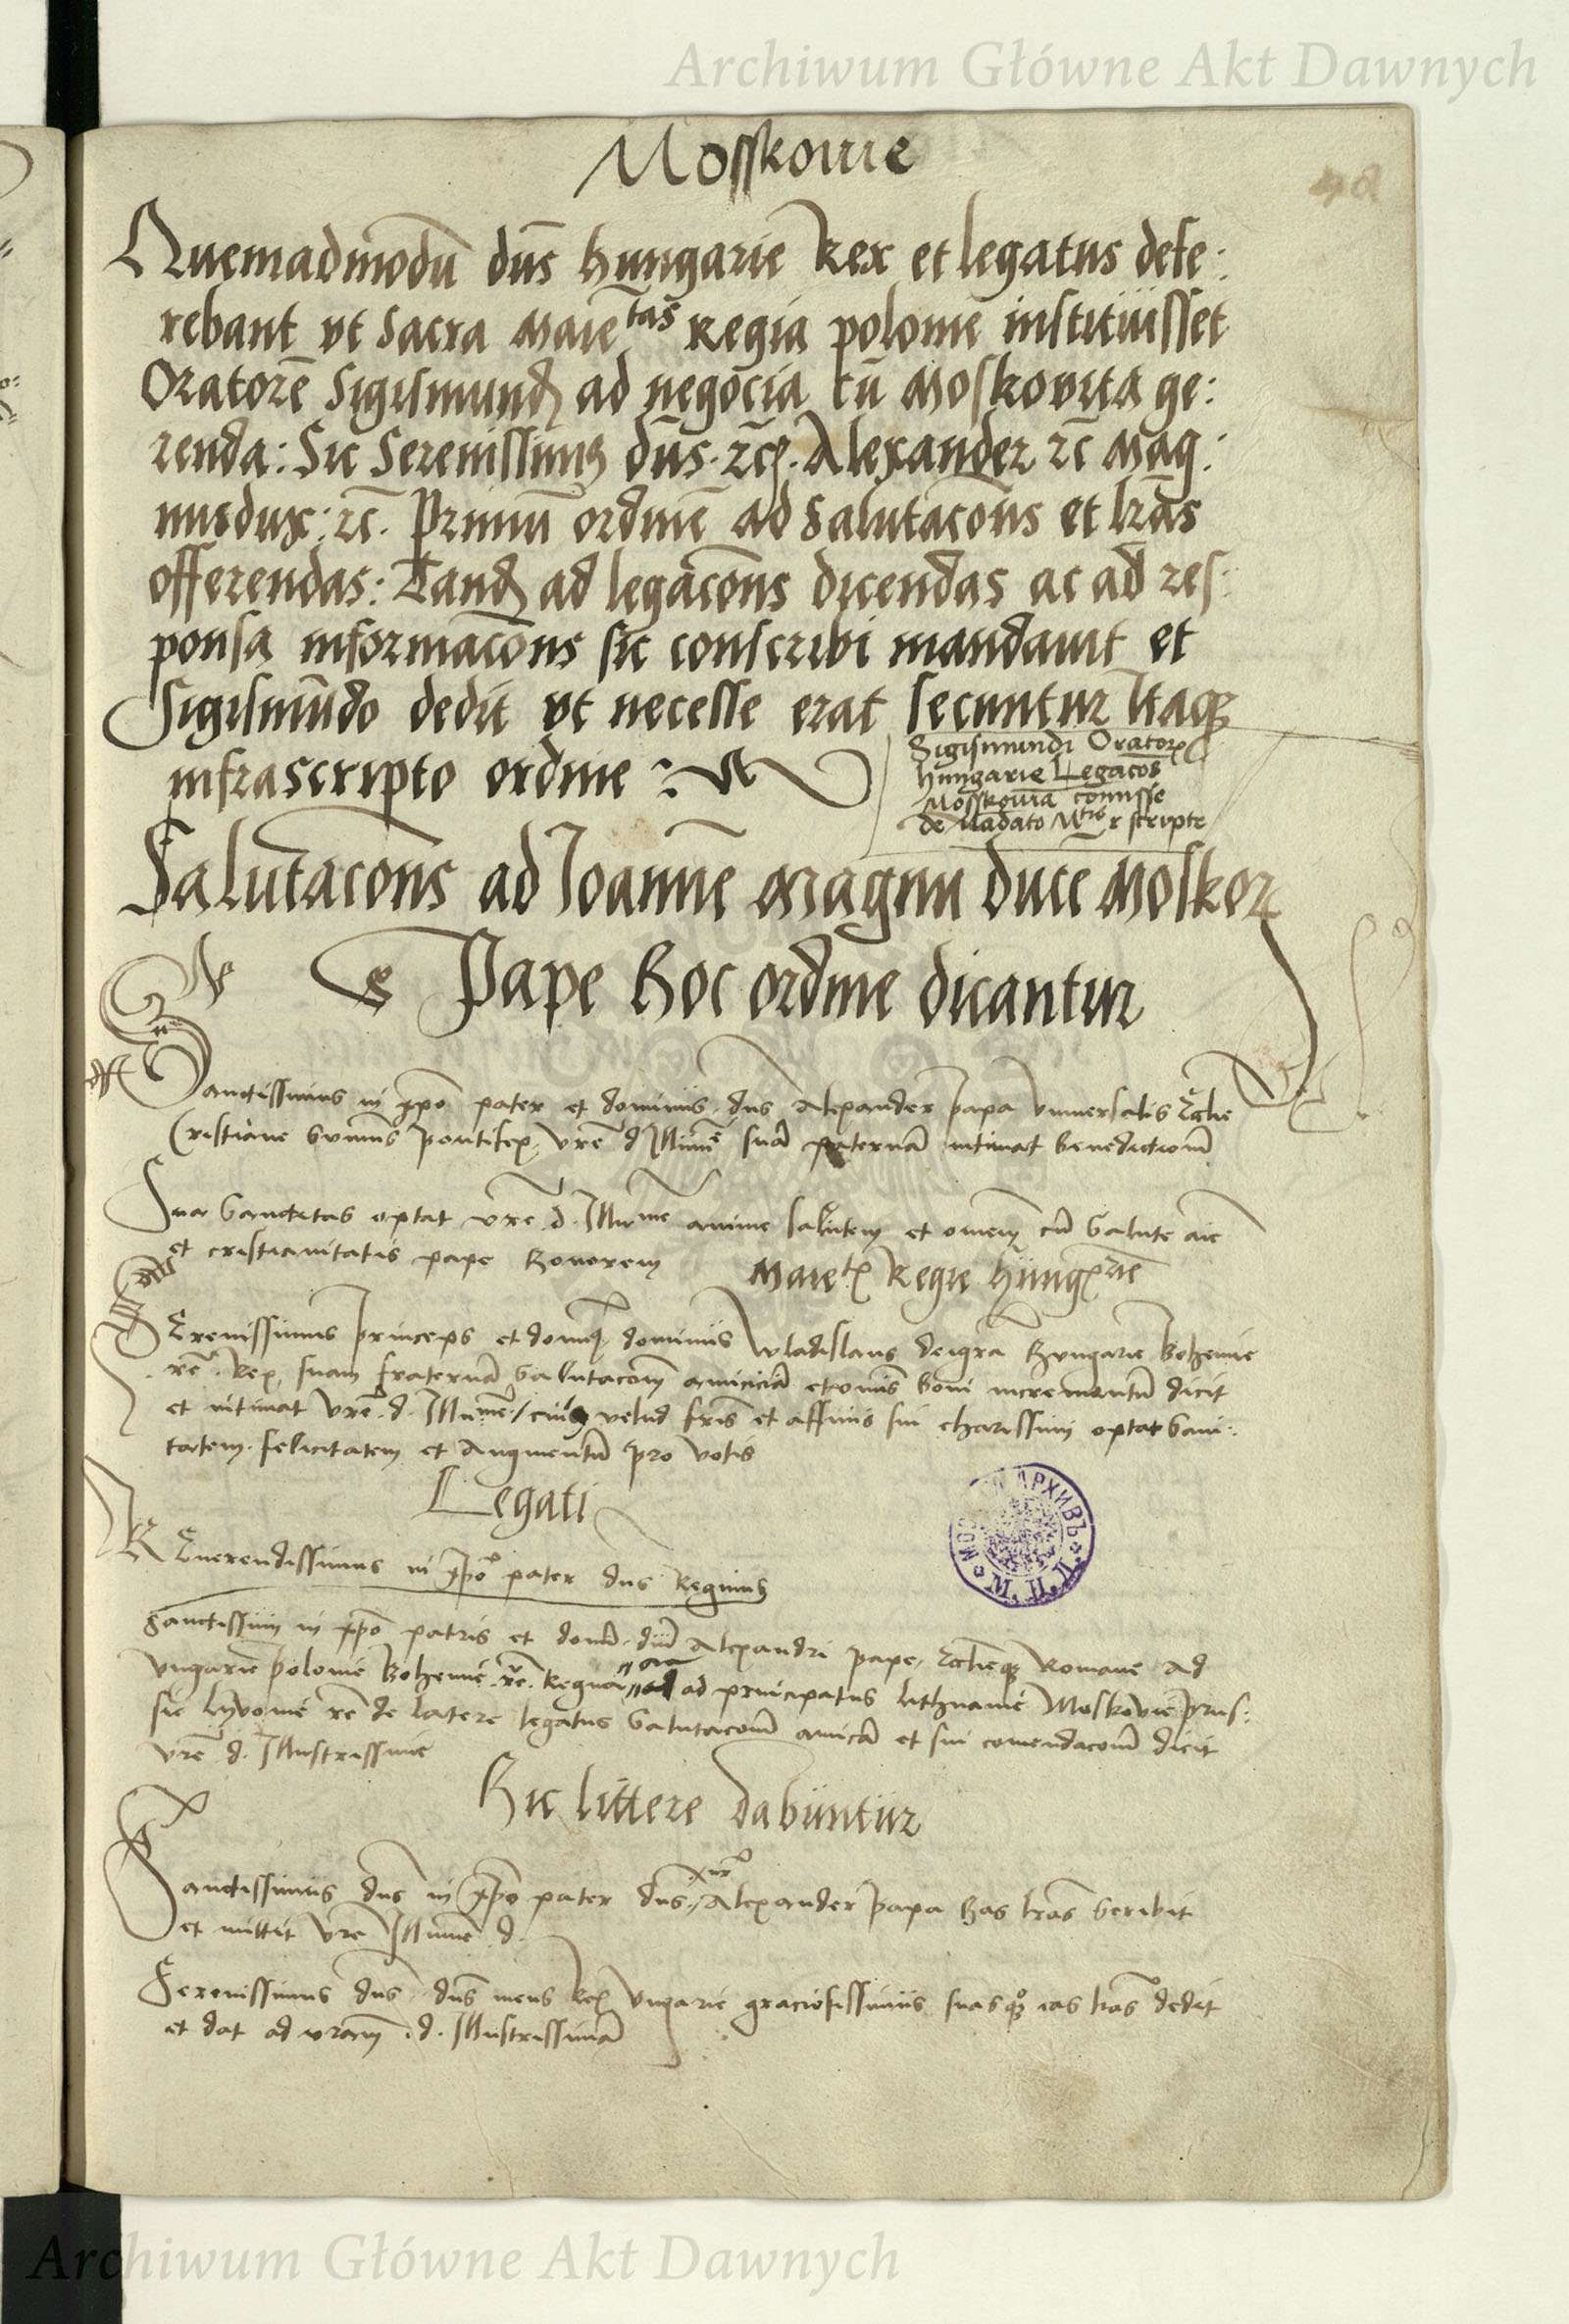 Archiwum Główne Akt Dawnych
Mosskouie
48
Quemadmodū dn̄s hungarie Rex et legatus defe:
rebant vt Sacra Maiētas Regia polonie instituisset
Oratorē Sigismundꝫ ad negōcia cū Moskovita ge:
renda: Sic Serenissimꝰ dn̄s. rc̄. Alexander rc̄ Mag:
nusdux: rc̄. Primū ordinē ad Salutacōns et lr̄as
offerendas: Tandꝫ ad legacōns dicendas ac ad res:
ponsa informacōns sic conscribi mandauit et
Sigismūdo dedit vt necesse erat secuntur Itaqꝫ
infrascripto ordine :
Sigismundi Oratorꝭ
hungarie Legacōs
Mosskouiā comisse
de Mādato Mtis r scripte
Salutacōns ad Joannē Magnū ducē Moskoꝝ
Pape hoc ordine dicantur
Sanctissimus in xp̄o pater et dominus dn̄s Alexander papa vniuersalis Ecclie
Cristiane Sum̄us pontifex, vrē d Illūme suā paternā intimat benedictionē
Sua Sanctitas optat vrē d. Illume anime salutem et omem̄ cū Salute aīe
et cristianitatis pape honorem
Maietꝭ Regie hungꝭrie
Serenissimus princeps et domꝫ dominus Wladislaus deigrā hungarie Bohemie
rc̄. Rex, suam fraternā Salutacōm amiciciā etomīs boni incrementū dicit
et intimat vrē. d. Illūme / cuiꝰ velud fr̄is et affinis sui charissimi optat Sani:
tatem. felicitatem et Augmentū pro votis
Legati
Reuerendissimus in xp̄o pater dn̄s Reginus
Sanctissimi in xp̄o patris et domī. dnī Alexandri pape, Ecclieqꝫ Romane Ad
vngarie polonie Bohemie. rc̄. Regna ad principatus lithuanie Moskovie prus:
sie lyvonie rc̄ de latere legatus Salutacōm amicā et sui comendacōm dicit
vrē d. Illustrissime
МОС АРХИВЪ М. И. Д.
Hic littere dabuntur
Sanctissimus dn̄s in xp̄o pater dn̄s. Alexander papa has lr̄as Scribit
et mittit vrē Illūme d.
Serenissimus dn̄s dn̄s meus Rex vngarie graciosissimus suasqꝫ eas lr̄as dedit
et dat ad vram̄. d. Illustrissimā
Archiwum Główne Akt Dawnych